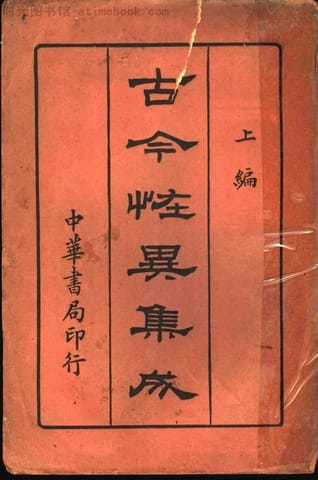 时光图书馆-atimebook.com
上編
古今恠異集成
中華書局印行